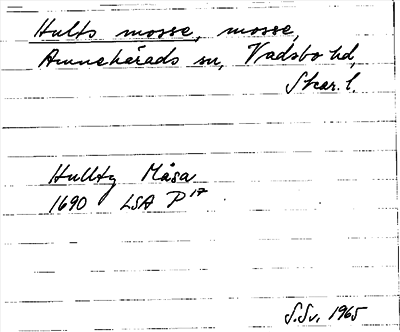 Hults mosse, mosse,
Amnehärads sn, Vadsbo hd,
Skar. l.
Hullty Måsa
1690 LSA P 17
S.Sv. 1965